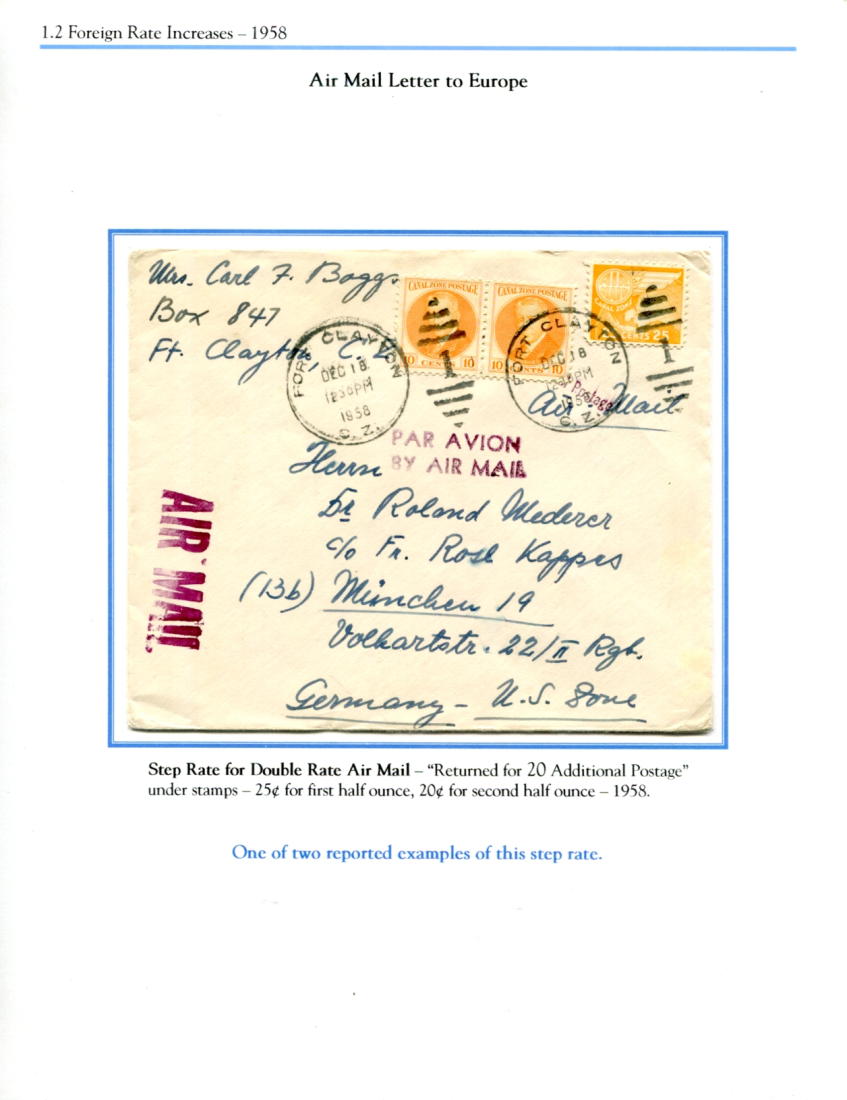 1.2 Foreign Rate Increases – 1958
Air Mail Letter to Europe
Mrs. Carl F. Boggs
Box 847
Ft. Clayton, C.Z.
CANAL ZONE POSTAGE
10 CENTS 10
CANAL ZONE POSTAGE
10 CENTS 10
CANAL ZONE
CENTS 25
FORT CLAYTON
DEC 18
1230PM
1958
C. Z.
FORT CLAYTON
DEC 18
1230PM
1958
C. Z.
Postage
Air Mail
PAR AVION
BY AIR MAIL
AIR MAIL
Herrn
Dr Roland Mederer
c/o Fr. Rosl Kappes
(13b) München 19
Volkartstr. 22/II Rgb.
Germany – U.S. Zone
Step Rate for Double Rate Air Mail – “Returned for 20 Additional Postage”
under stamps – 25¢ for first half ounce, 20¢ for second half ounce – 1958.
One of two reported examples of this step rate.